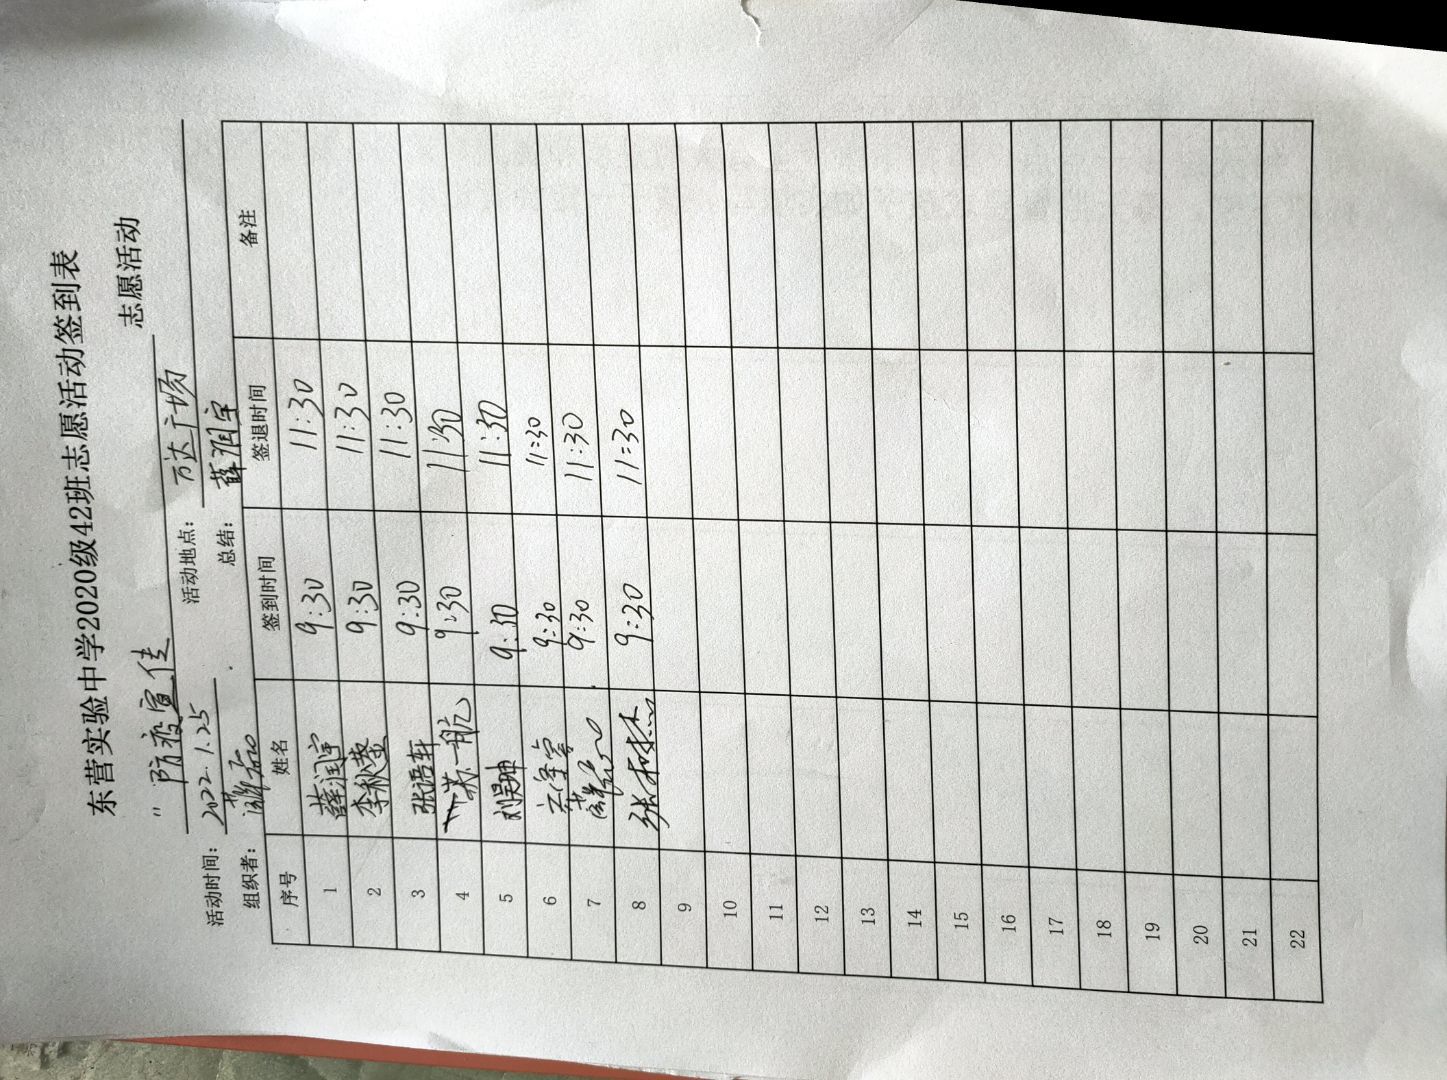 东营实验中学2020级42班志愿活动签到表
“防疫宣传 志愿活动
活动时间: 2022.1.25 活动地点: 万达广场
组织者: 总结: 薛润宇
序号 姓名 签到时间 签退时间 备注
1 薛润宇 9:30 11:30
2 李秋莹 9:30 11:30
3 张语轩 9:30 11:30
4 苏一航 9:30 11:30
5 刘昊坤 9:30 11:30
6 9:30 11:30
7 9:30 11:30
8 张 9:30 11:30
9
10
11
12
13
14
15
16
17
18
19
20
21
22